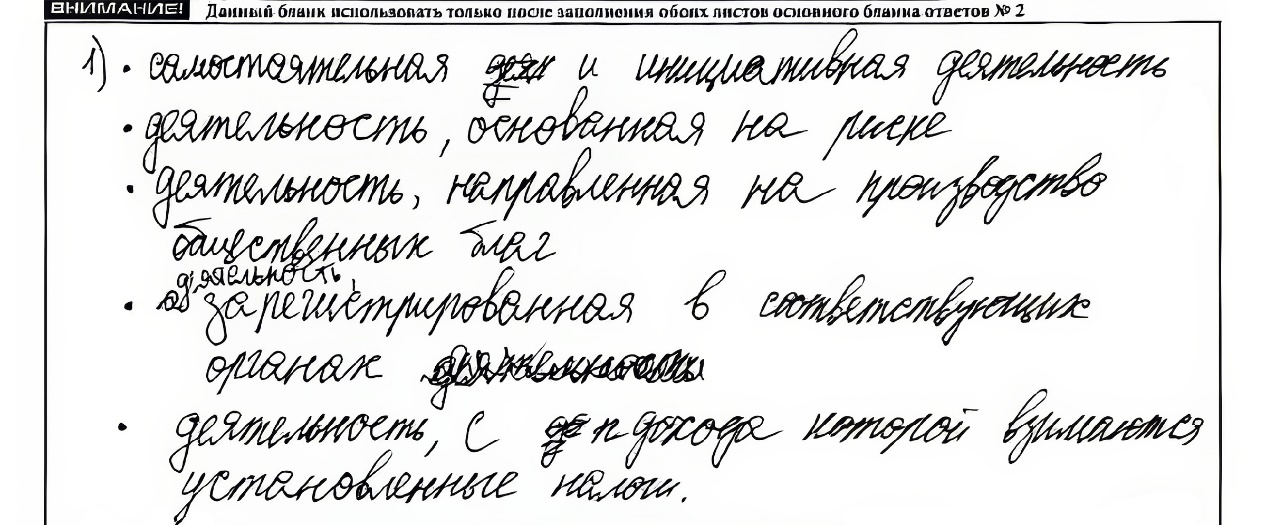 ВНИМАНИЕ! Данный бланк использовать только после заполнения обоих листов основного бланка ответов № 2
1) • самостоятельная и инициативная деятельность
• деятельность, основанная на риске
• деятельность, направленная на производство
общественных благ
деятельность,
• зарегистрированная в соответствующих
органах
• деятельность, с дохода которой взимаются
установленные налоги.